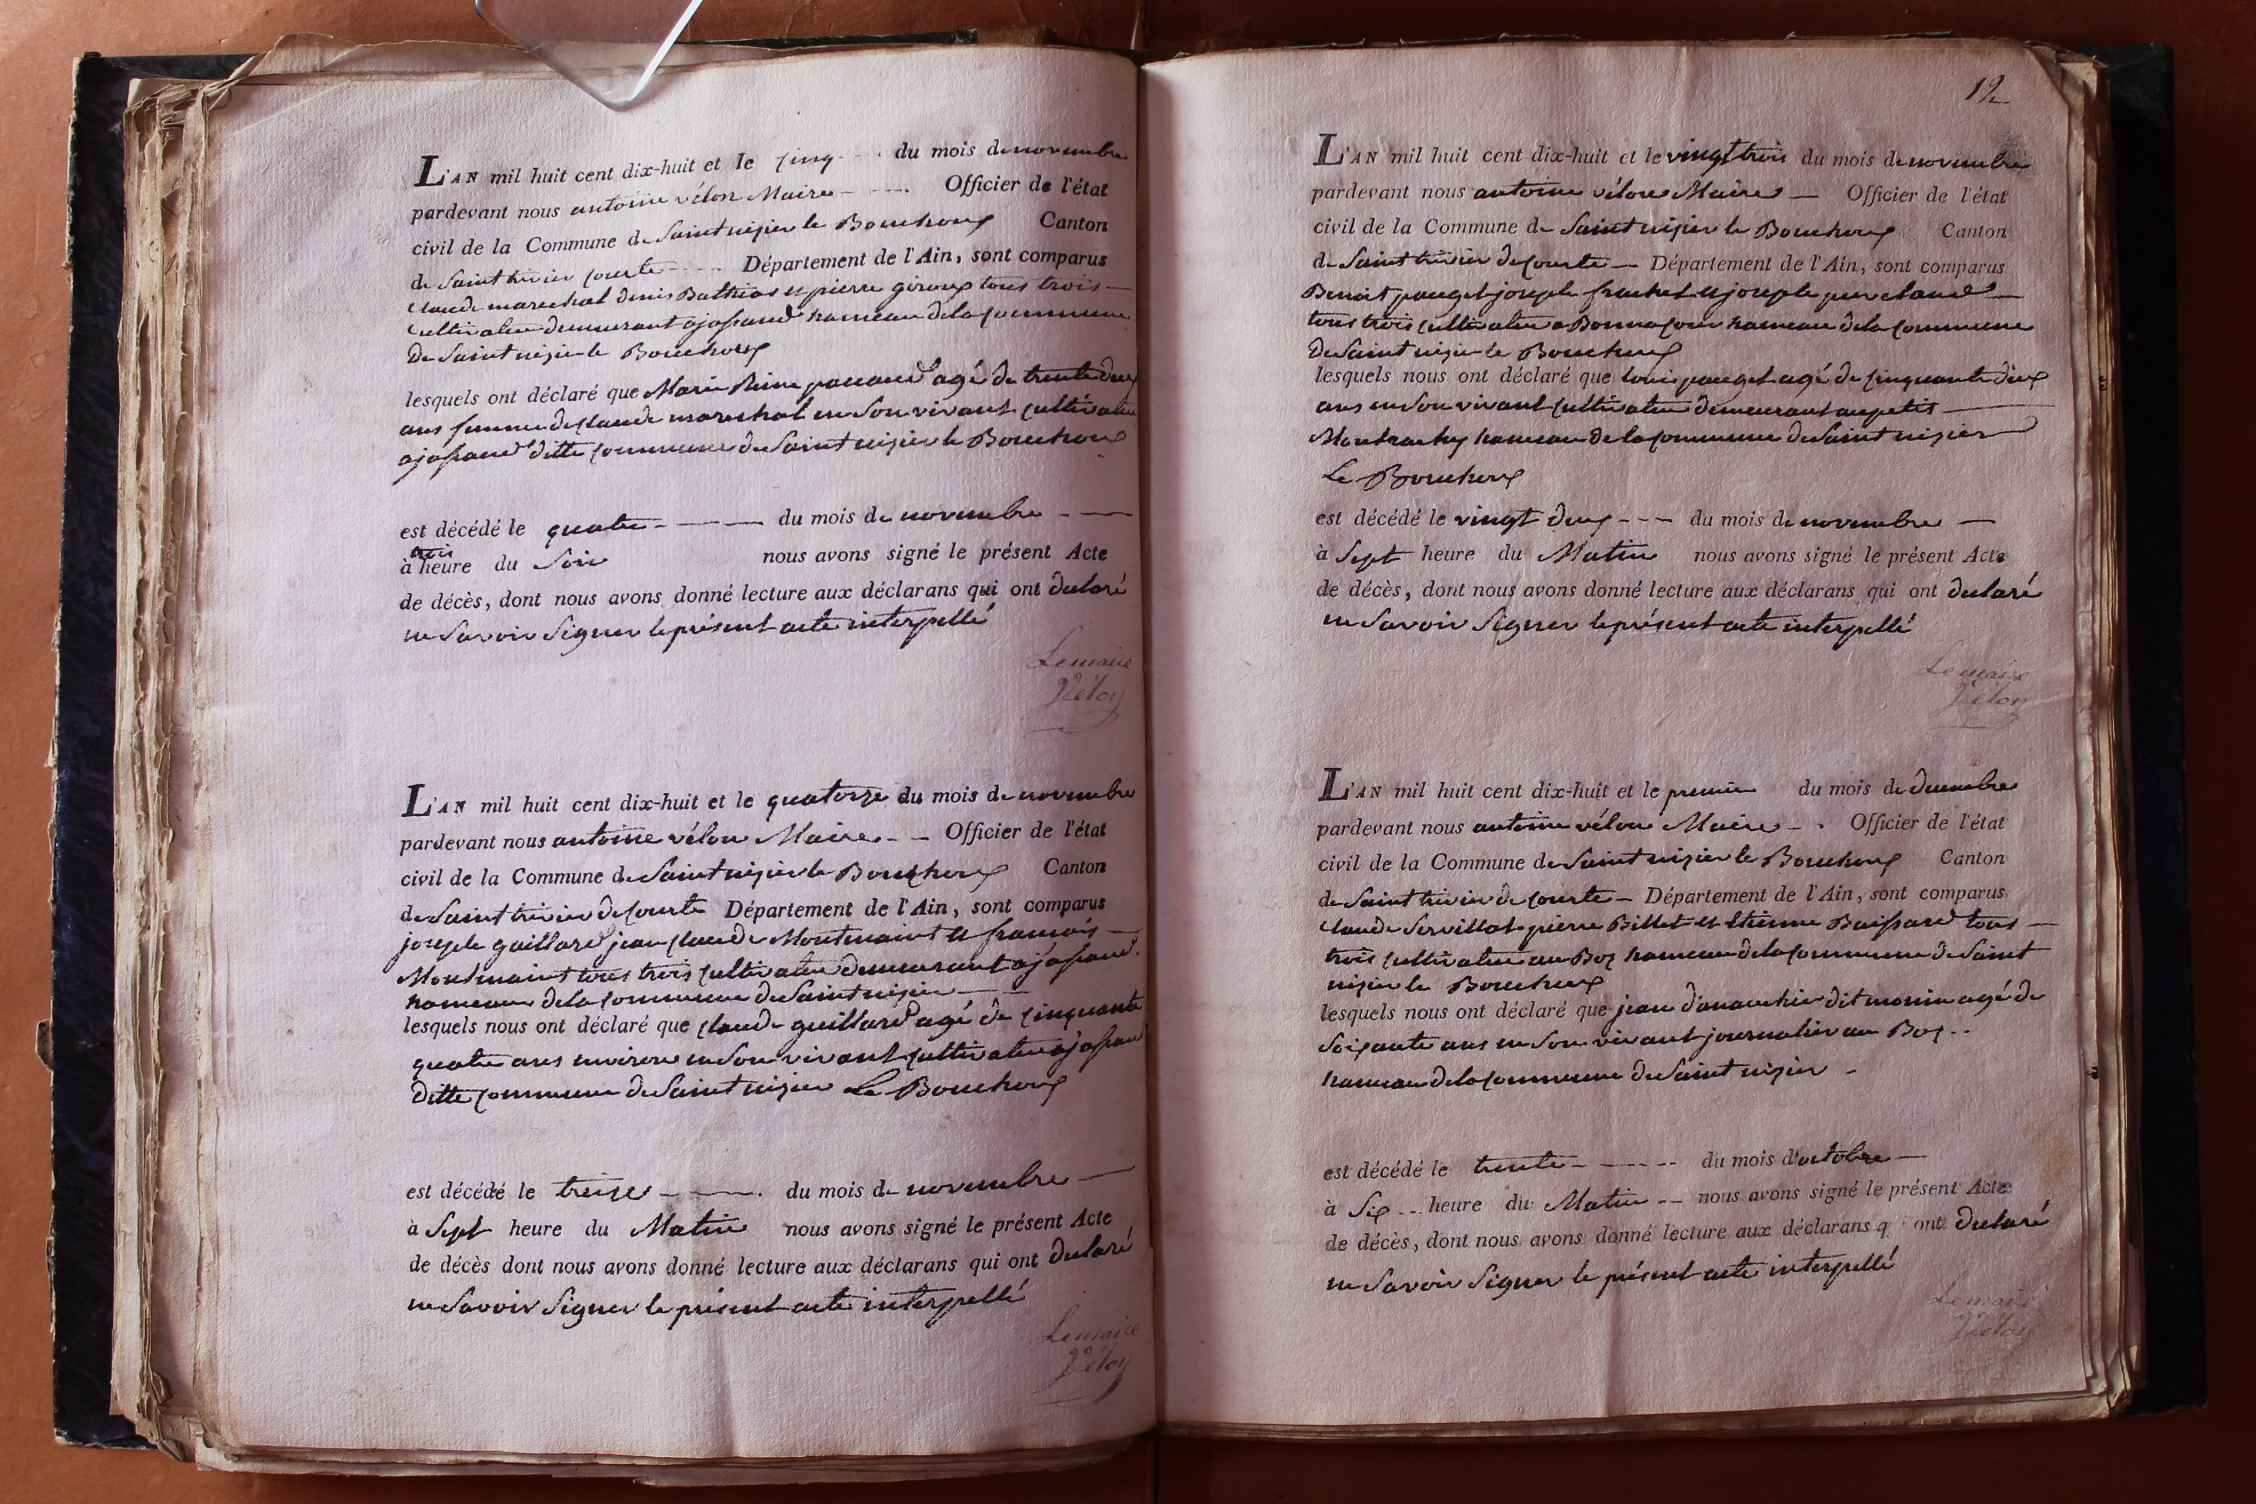 L'AN mil huit cent dix-huit et le cinq du mois de novembre
pardevant nous antoine vélon Maire Officier de l'état
civil de la Commune de Saint nizier le Bouchoux Canton
de Saint trivier courte Département de l'Ain, sont comparus
claude marechal denis Bathias et pierre giroux tous trois
cultivateur demeurant a josand hameau de la commune
de Saint nizier le Bouchoux
lesquels ont déclaré que Marie Reine pauaud agé de trente deux
ans femme de claude marechal en son vivant cultivateur
a josand ditte commune de Saint nizier le Bouchoux
est décédé le quatre du mois de novembre
trois
à heure du Soir nous avons signé le présent Acte
de décès, dont nous avons donné lecture aux déclarans qui ont declaré
ne Savoir Signer le présent acte interpellé
Le maire
Vélon
L'AN mil huit cent dix-huit et le quatorze du mois de novembre
pardevant nous antoine vélon Maire Officier de l'état
civil de la Commune de Saint nizier le Bouchoux Canton
de Saint trivier de courte Département de l'Ain, sont comparus
joseph gaillard jean claude Montmaint et françois
Montmaint tous trois cultivateur demeurant a josand
hameau de la commune de Saint nizier
lesquels nous ont déclaré que claude guillard agé de cinquante
quatre ans environ en Son vivant cultivateur a josand
ditte commune de Saint nizier Le Bouchoux
est décédé le treize du mois de novembre
à Sept heure du Matin nous avons signé le présent Acte
de décès dont nous avons donné lecture aux déclarans qui ont declaré
ne Savoir Signer le présent acte interpellé
Le maire
Vélon
12
L'AN mil huit cent dix-huit et le vingt trois du mois de novembre
pardevant nous antoine vélon Maire Officier de l'état
civil de la Commune de Saint nizier le Bouchoux Canton
de Saint trivier de courte Département de l'Ain, sont comparus
Benoit pauget joseph frachet et joseph
tous trois cultivateur a Bonnacour hameau de la commune
de Saint nizier le Bouchoux
lesquels nous ont déclaré que louis pauget agé de cinquante deux
ans en Son vivant cultivateur demeurant au petit
hameau de la commune de Saint nizier
Le Bouchoux
est décédé le vingt deux du mois de novembre
à Sept heure du Matin nous avons signé le présent Acte
de décès, dont nous avons donné lecture aux déclarans qui ont declaré
ne Savoir Signer le présent acte interpellé
Le maire
Vélon
L'AN mil huit cent dix-huit et le premier du mois de decembre
pardevant nous antoine vélon Maire Officier de l'état
civil de la Commune de Saint nizier le Bouchoux Canton
de Saint trivier de courte Département de l'Ain, sont comparus
claude Servillat pierre Billet et Etienne Buissard tous
trois cultivateur au Boz hameau de la commune de Saint
nizier le Bouchoux
lesquels nous ont déclaré que jean dit monin agé de
Soixante ans en Son vivant journalier au Boz
hameau de la commune de Saint nizier
est décédé le trente du mois d'octobre
à Six heure du Matin nous avons signé le présent Acte
de décès, dont nous avons donné lecture aux déclarans q ont declaré
ne Savoir Signer le présent acte interpellé
Le maire
Vélon